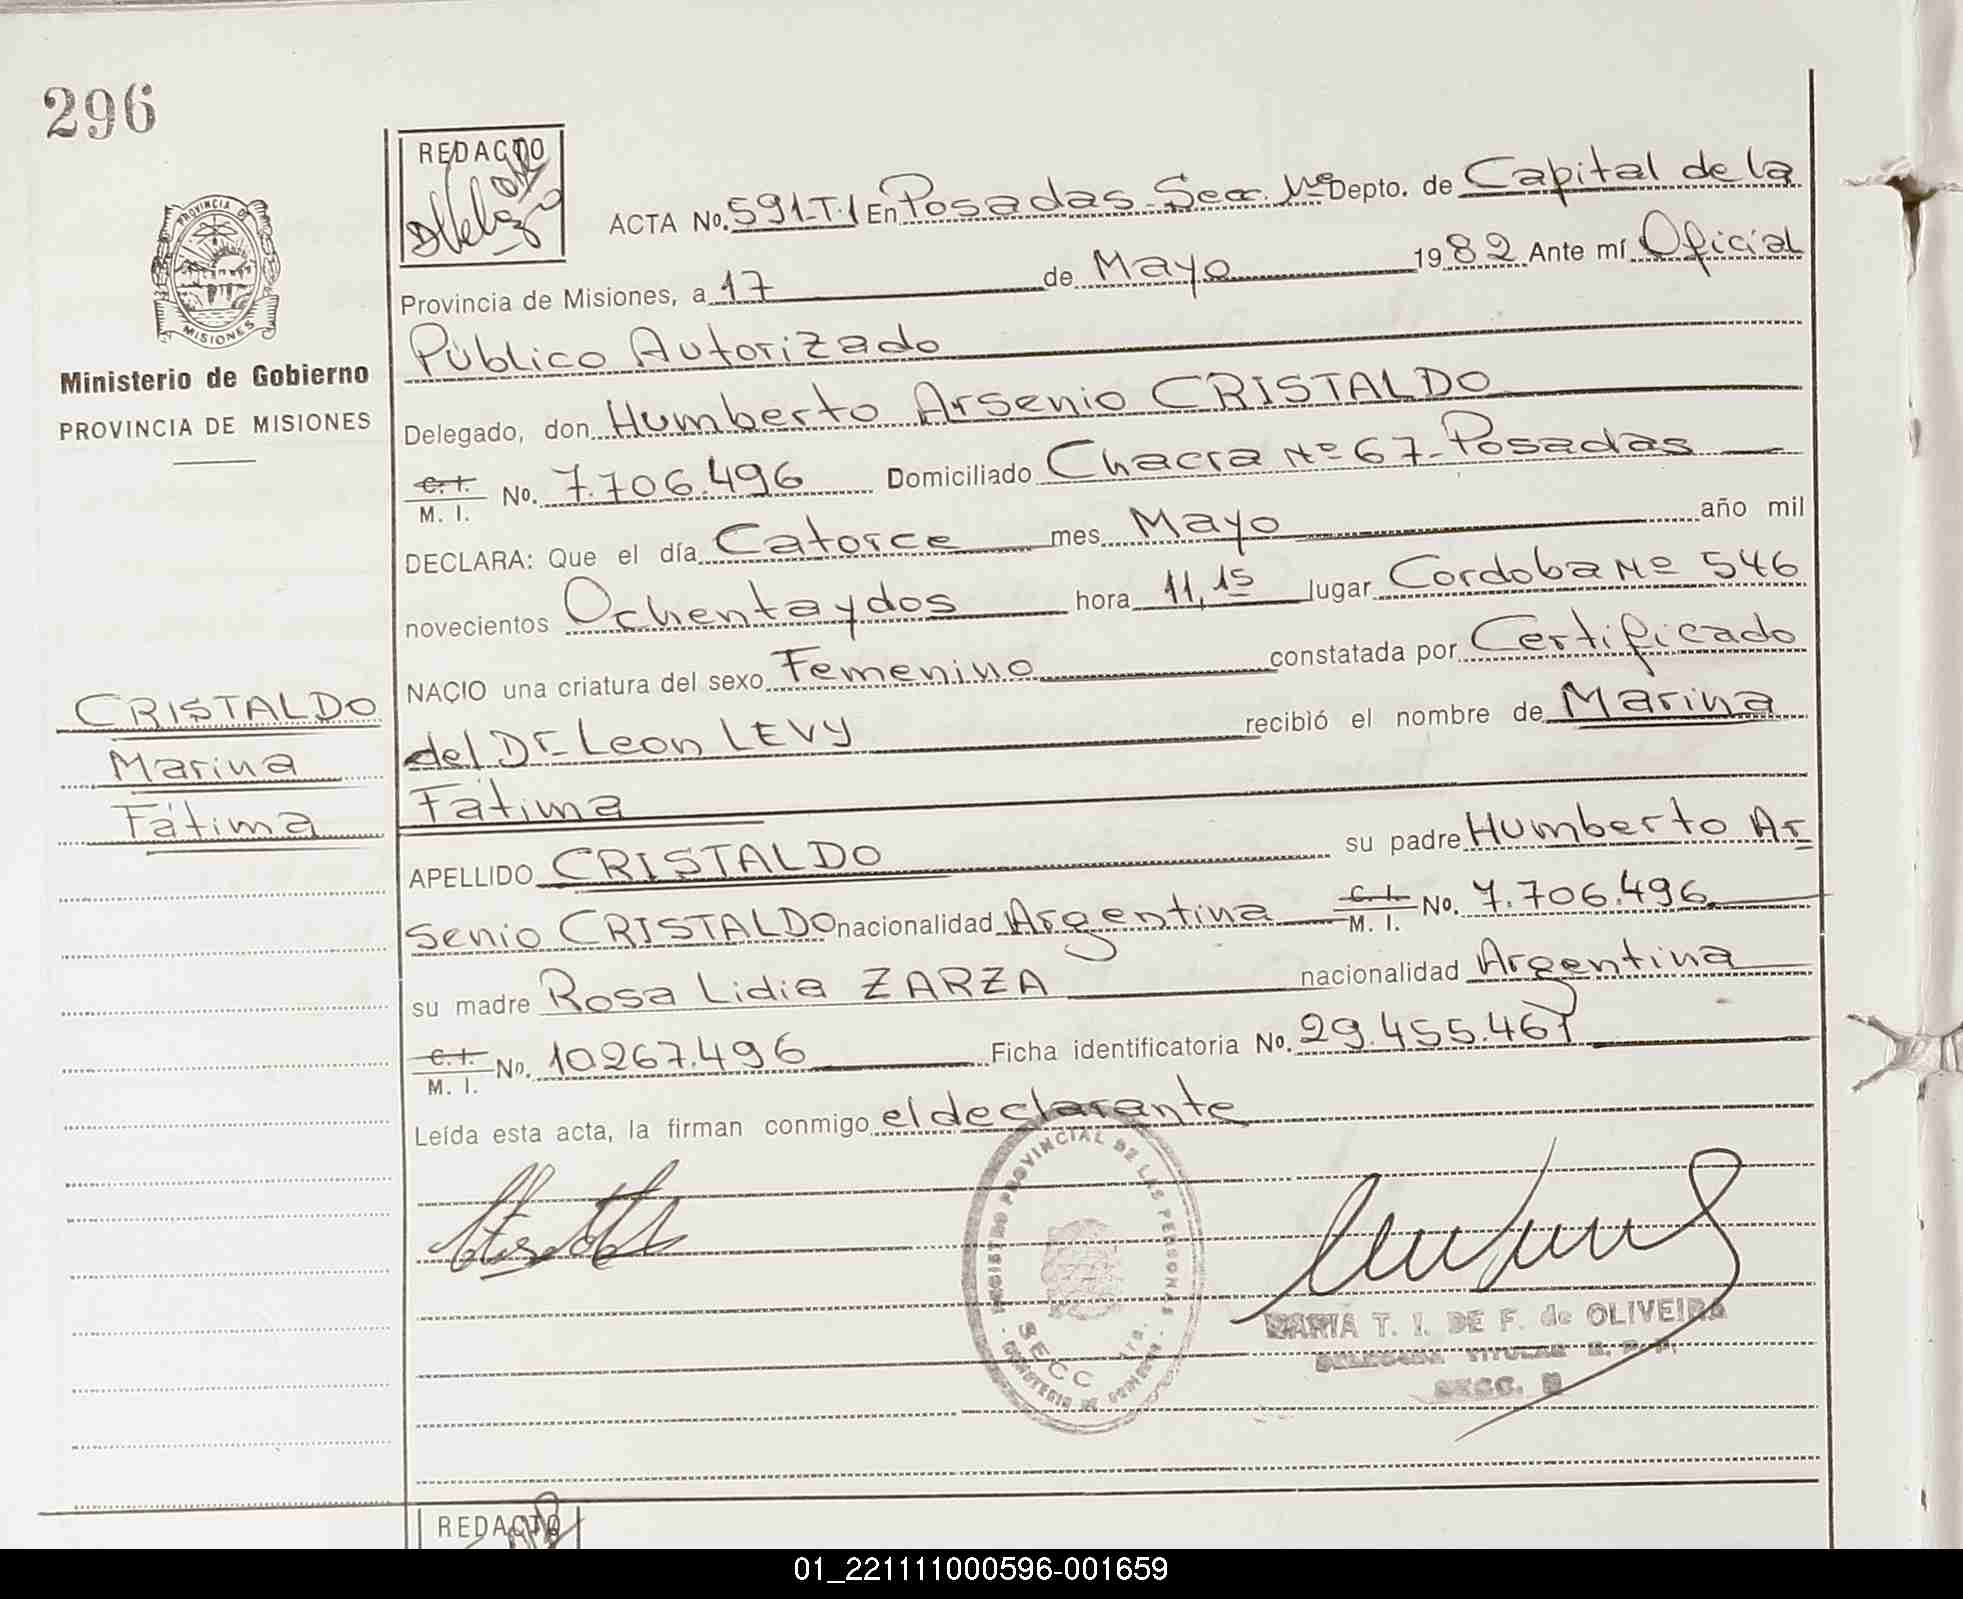 296
REDACTO
ACTA No. 591-T.1 En Posadas - Secc. 1ª Depto. de Capital de la
Provincia de Misiones, a 17 de Mayo 1982 Ante mí Oficial
Público Autorizado
Delegado, don Humberto Arsenio CRISTALDO
C. I.
M. I. No. 7.706.496 Domiciliado Chacra Nº 67 - Posadas
DECLARA: Que el día Catorce mes Mayo año mil
novecientos Ochentaydos hora 11,15 lugar Cordoba Nº 546
NACIO una criatura del sexo Femenino constatada por Certificado
del Dr. Leon LEVY recibió el nombre de Marina
Fátima
APELLIDO CRISTALDO su padre Humberto Ar
senio CRISTALDO nacionalidad Argentina C. I.
M. I. No. 7.706.496
su madre Rosa Lidia ZARZA nacionalidad Argentina
C. I.
M. I. No. 10267.496 Ficha identificatoria No. 29.455.467
Leída esta acta, la firman conmigo el declarante
PROVINCIA DE
MISIONES
Ministerio de Gobierno
PROVINCIA DE MISIONES
CRISTALDO
Marina
Fátima
REGISTRO PROVINCIAL DE LAS PERSONAS
SECC 1ra.
MINISTERIO DE GOBIERNO
MARIA T. I. DE F. de OLIVEIRA
DELEGADA TITULAR R. P. P.
SECC.
REDACTO
01_221111000596-001659